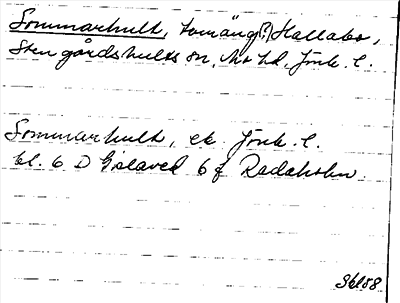 Sommarhult, tomäng(?) Hallabo,
Stengårdshults sn, Mo hd, Jönk. l.
Sommarhult, ek Jönk. l.
bl. 6 D Gislaved 6 f Radaholm
S6l58